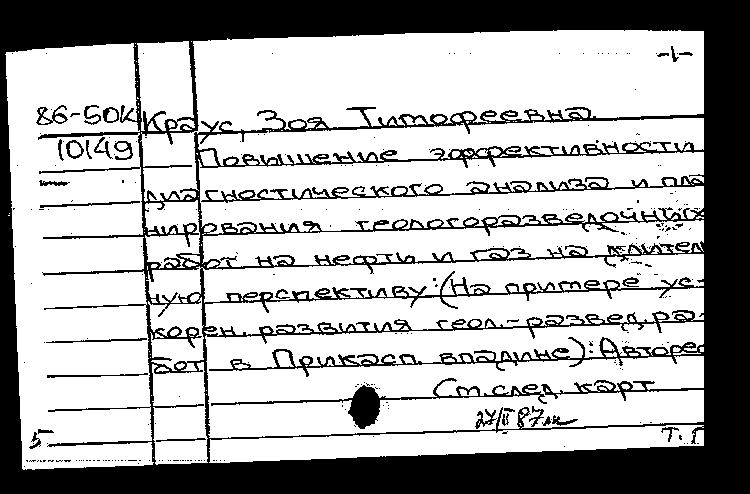 -1-
86-50К Краус, Зоя Тимофеевна.
10149 Повышение эффективности
диагностического анализа и пла
нирования геологоразведочных
работ на нефть и газ на длител
ную перспективу: (На примере ус-
корен. развития геол.-развед. ра-
бот в Прикасп. впадине): Авторе
См. след. карт
27/II 87
5 Т. Г